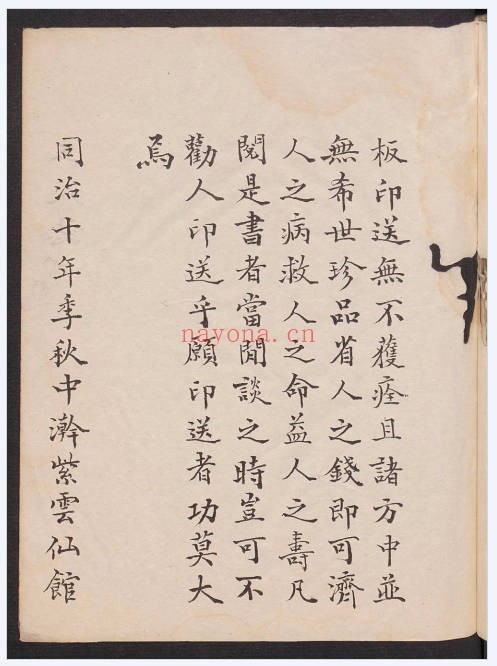 板印送無不獲痊且諸方中並
無希世珍品省人之錢即可濟
人之病救人之命益人之壽凡
閱是書者當閒談之時豈可不
勸人印送乎願印送者功莫大
焉
同治十年季秋中澣紫雲仙館
nayona.cn